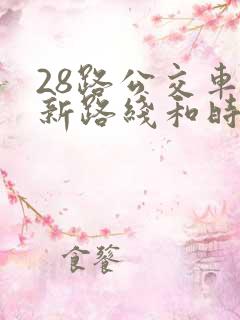 28路公交車
新路綫和時
食餮